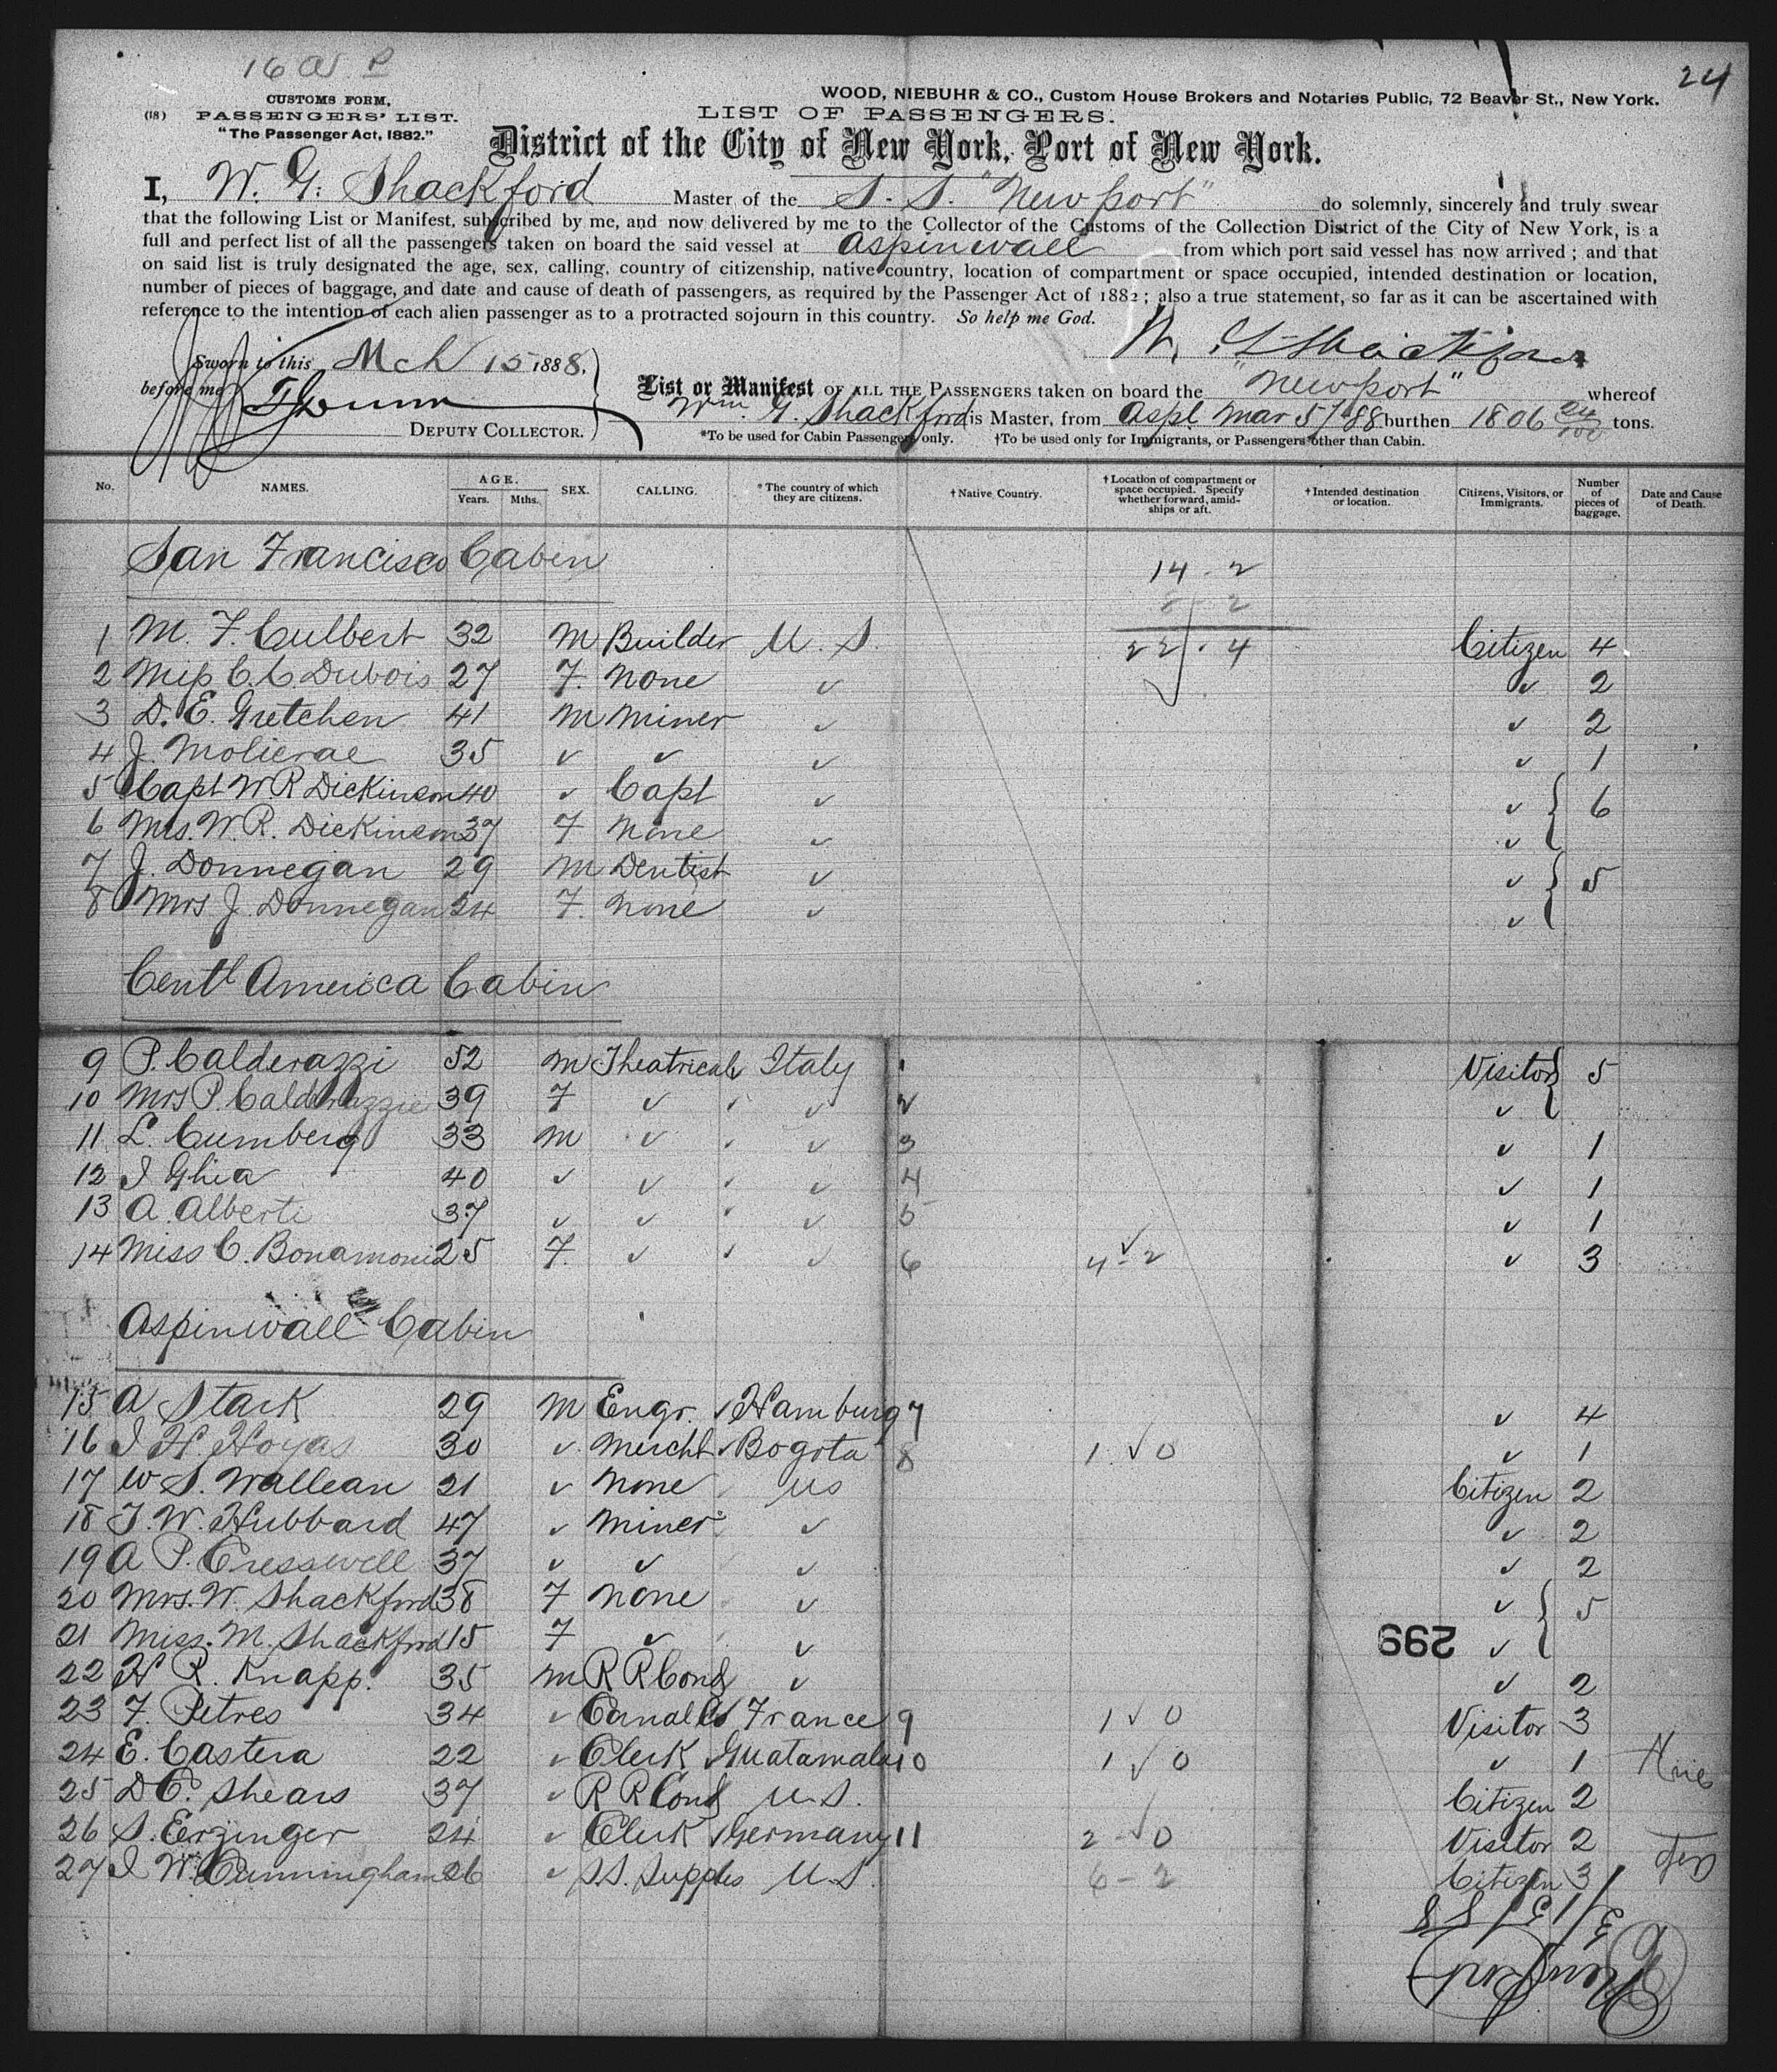 24
16
CUSTOMS FORM,
(18) PASSENGERS' LIST.
"The Passenger Act, 1882."
WOOD, NIEBUHR & CO., Custom House Brokers and Notaries Public, 72 Beaver St., New York.
LIST OF PASSENGERS.
District of the City of New York, Port of New York.
I, W. G. Shackford Master of the S. S. "Newport" do solemnly, sincerely and truly swear
that the following List or Manifest, subscribed by me, and now delivered by me to the Collector of the Customs of the Collection District of the City of New York, is a
full and perfect list of all the passengers taken on board the said vessel at Aspinwall from which port said vessel has now arrived ; and that
on said list is truly designated the age, sex, calling, country of citizenship, native country, location of compartment or space occupied, intended destination or location,
number of pieces of baggage, and date and cause of death of passengers, as required by the Passenger Act of 1882 ; also a true statement, so far as it can be ascertained with
reference to the intention of each alien passenger as to a protracted sojourn in this country. So help me God.
W. G. Shackford
Sworn to this Mch 15 1888,
before me
DEPUTY COLLECTOR.
List or Manifest OF ALL THE PASSENGERS taken on board the "Newport" whereof
Wm. G. Shackford is Master, from Aspl Mar 5/88 burthen 1806 24/100 tons.
*To be used for Cabin Passengers only. †To be used only for Immigrants, or Passengers other than Cabin.
No. NAMES. AGE. Years. Mths. SEX. CALLING. *The country of which they are citizens. †Native Country. †Location of compartment or space occupied. Specify whether forward, amidships or aft. †Intended destination or location. Citizens, Visitors, or Immigrants. Number of pieces of baggage. Date and Cause of Death.
San Francisco Cabin
14 - 2
2
22 . 4
1 M. F. Culbert 32 M Builder U. S. Citizen 4
2 Miss C. C. Dubois 27 F. None ✓ ✓ 2
3 D. E. Gretchen 41 M Miner ✓ ✓ 2
4 J. Molierae 35 ✓ ✓ ✓ ✓ 1
5 Capt W R Dickinson 40 ✓ Capt ✓ ✓ 6
6 Mrs. W. R. Dickinson 37 F None ✓ ✓
7 J. Donnegan 29 M Dentist ✓ ✓ 5
8 Mrs J. Donnegan 24 F. None ✓ ✓
Centl America Cabin
9 P. Calderazzi 52 M Theatricals Italy 1 Visitor 5
10 Mrs P. Calderazzie 39 F ✓ ✓ 2 ✓
11 L. Cumberg 33 M ✓ ✓ 3 ✓ 1
12 I Ghia 40 ✓ ✓ ✓ 4 ✓ 1
13 A. Alberti 37 ✓ ✓ ✓ 5 ✓ 1
14 Miss C. Bonamoni 25 F. ✓ ✓ 6 4 - 2 ✓ 3
Aspinwall Cabin
15 A Stark 29 M Engr. Hamburg 7 ✓ 4
16 I H. Hoyas 30 ✓ Mercht Bogota 8 1 ✓ 0 ✓ 1
17 W S. Wallean 21 ✓ None US Citizen 2
18 T. W. Hubbard 47 ✓ Miner ✓ ✓ 2
19 A P. Cresswell 37 ✓ ✓ ✓ ✓ 2
20 Mrs. W. Shackford 38 F None ✓ ✓ 5
21 Miss. M. Shackford 15 F ✓ ✓ ✓
299
22 H R. Knapp. 35 M R R Cond ✓ ✓ 2
23 F. Petres 34 ✓ Canal Co France 9 1 ✓ 0 Visitor 3
24 E. Castera 22 ✓ Clerk Guatamala 10 1 ✓ 0 ✓ 1
25 D C. Shears 37 ✓ R R Cond U. S. Citizen 2
26 S. Erzinger 24 ✓ Clerk Germany 11 2 - ✓ 0 Visitor 2
27 I W. Cunningham 26 ✓ S.S. Supples U. S. 6 - 2 Citizen 3
3/15/88
Newport